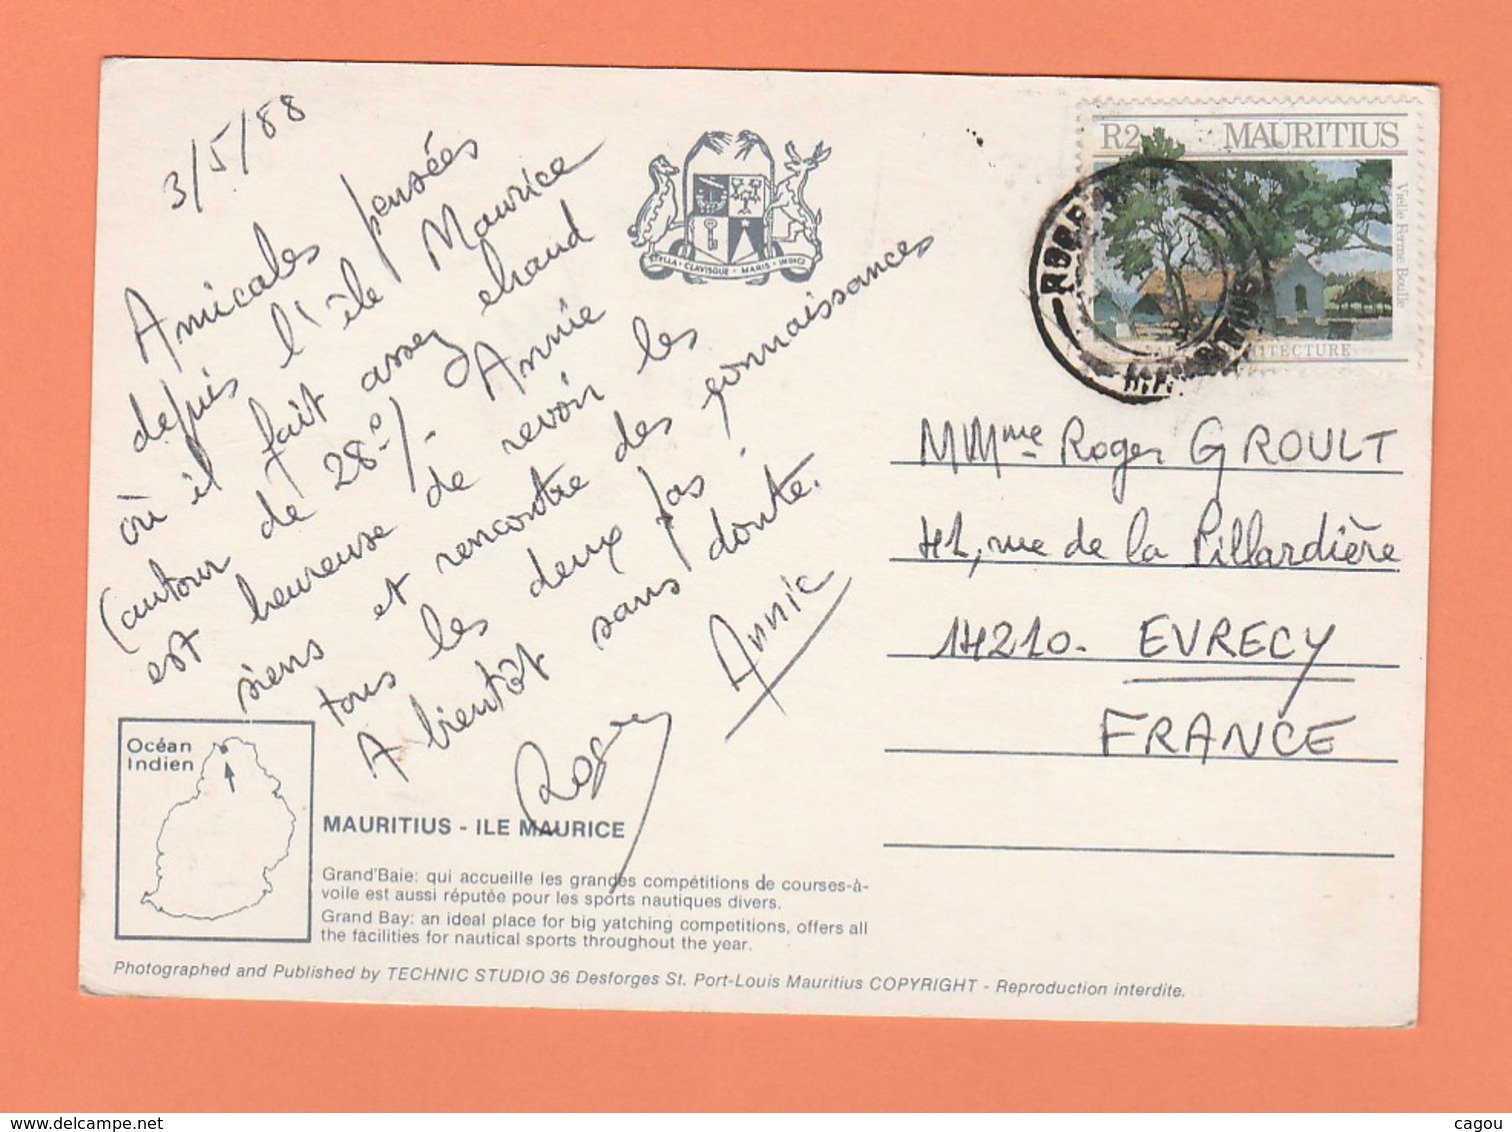 3/5/88
Amicales pensées
depuis l'île Maurice
où il fait assez chaud
(autour de 28°/. Annie
est heureuse de revoir les
siens et rencontre des connaissances
tous les deux pas.
A bientôt sans doute.
Annie
Roger
STELLA · CLAVISQUE · MARIS · INDICI
R2 MAURITIUS
Vielle Ferme Boulle
MMme Roger GROULT
41, rue de la Pillardière
14210. EVRECY
FRANCE
Océan
Indien
MAURITIUS - ILE MAURICE
Grand'Baie: qui accueille les grandes compétitions de courses-à-
voile est aussi réputée pour les sports nautiques divers.
Grand Bay: an ideal place for big yatching competitions, offers all
the facilities for nautical sports throughout the year.
Photographed and Published by TECHNIC STUDIO 36 Desforges St. Port-Louis Mauritius COPYRIGHT - Reproduction interdite.
www.delcampe.net
cagou